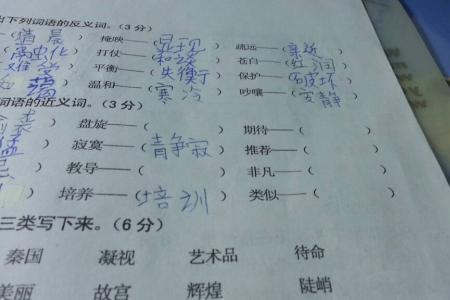 出下列词语的反义词。(3分)
清晨) 掩映——(显现) 疏远——(亲近
打仗——(和谈) 苍白——(红润
难受 平衡——(失衡) 保护——(破坏
温和——(寒冷 吵嚷——(安静
词语的近义词。(3分)
盘旋——( ) 期待——(
寂寞——( 寂 推荐——(
教导——( ) 非凡——(
培养——(培训) 类似——(
三类写下来。(6分)
秦国 凝视 艺术品 待命
美丽 故宫 辉煌 陡峭